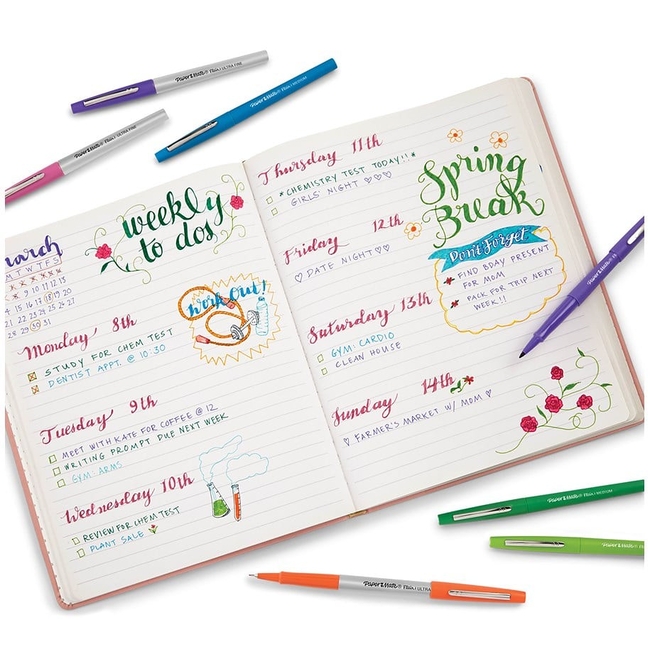 Paper Mate® Flair | ULTRA FINE
Paper Mate® Flair | MEDIUM
Paper Mate® Flair | ULTRA FINE
weekly
to dos
March
M T W T F S
Monday 8th
STUDY FOR CHEM TEST
DENTIST APPT. @ 10:30
Work Out!
Tuesday 9th
MEET WITH KATE FOR COFFEE @ 12
WRITING PROMPT DUE NEXT WEEK
GYM: ARMS
Wednesday 10th
REVIEW FOR CHEM TEST
PLANT SALE
Thursday 11th
*CHEMISTRY TEST TODAY!!*
GIRLS' NIGHT ♡♡♡
Friday 12th
♡ DATE NIGHT ♡
Saturday 13th
GYM: CARDIO
CLEAN HOUSE
Sunday 14th
♡ FARMER'S MARKET W/ MOM ♡
Spring
Break
Don't Forget
* FIND BDAY PRESENT
FOR MOM
* PACK FOR TRIP NEXT
WEEK!!
Paper Mate® Flair
Paper Mate® Flair | MEDIUM
Paper Mate® Flair | MEDIUM
Paper Mate® Flair | ULTRA